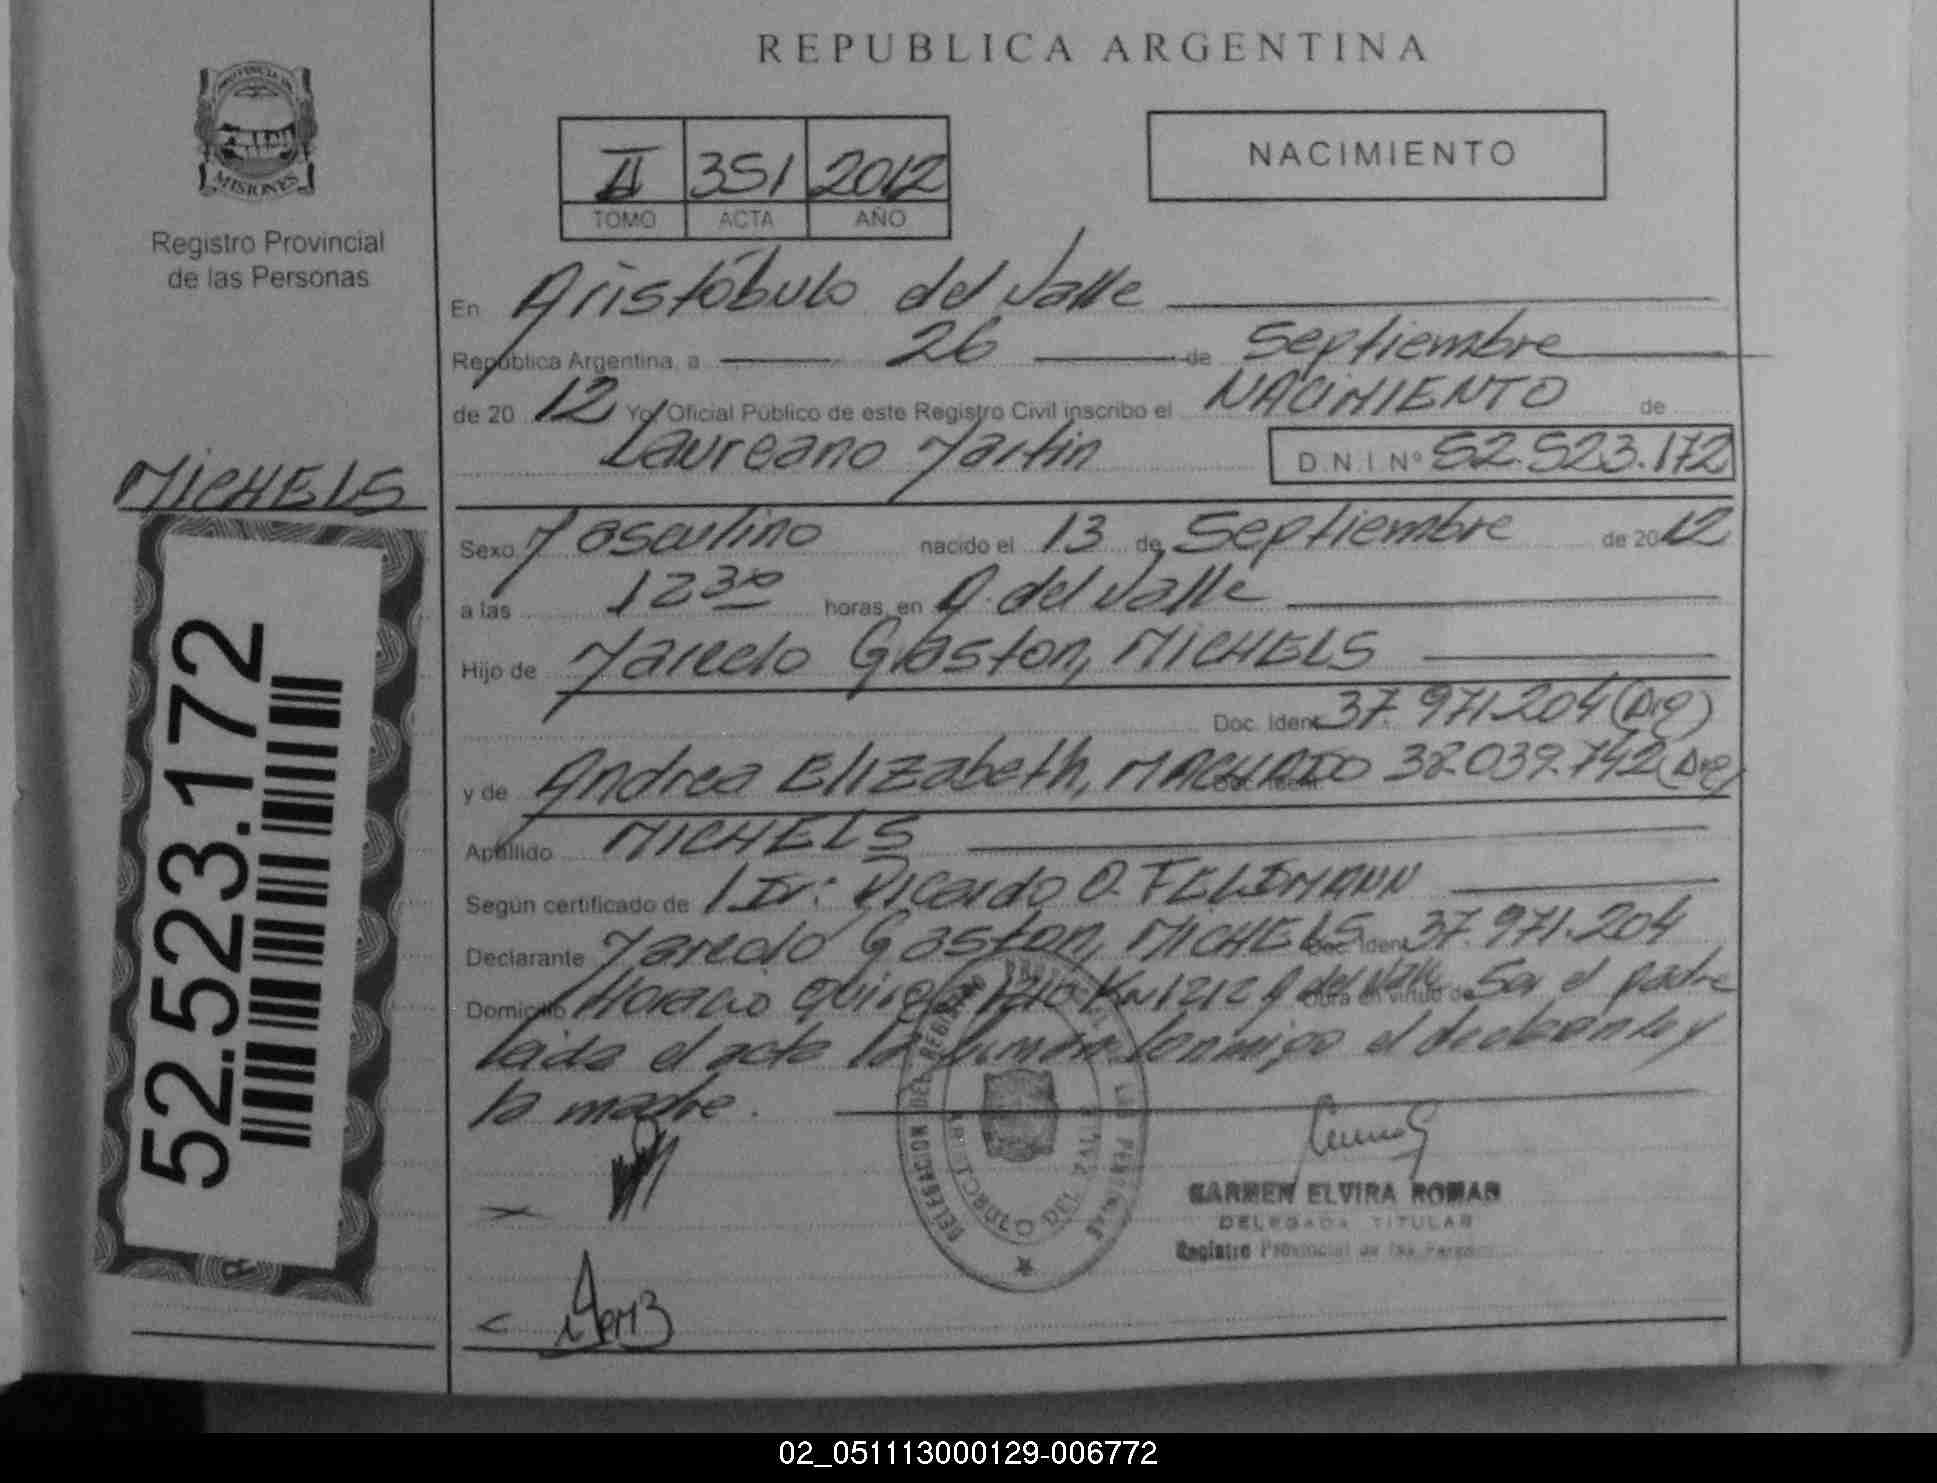 REPUBLICA ARGENTINA
PROVINCIA DE
MISIONES
Registro Provincial
de las Personas
II 351 2012
TOMO ACTA AÑO
NACIMIENTO
En Aristóbulo del Valle
República Argentina, a 26 de Septiembre
de 20 12 Yo, Oficial Público de este Registro Civil inscribo el NACIMIENTO de
Laureano Martin D.N.I Nº 52.523.172
MICHELS
52.523.172
Sexo Masculino nacido el 13 de Septiembre de 2012
a las 12 30 horas, en A. del Valle
Hijo de Marcelo Gaston, MICHELS
Doc. Ident. 37.971.204 (Arg)
y de Andrea Elizabeth, MACHADO 38.039.742 (Arg)
Apellido MICHELS
Según certificado de Dr: Ricardo O. FELDMANN
Declarante Marcelo Gaston, MICHELS Doc. Ident. 37.971.204
Domicilio Horacio Km 1212 A del Valle Obra en virtud de Ser el padre
leida el acta la firman conmigo el declarante y
la madre.
DELEGACION DEL REGISTRO PROVINCIAL DE LAS PERSONAS
ARISTOBULO DEL VALLE
CARMEN ELVIRA ROMAN
DELEGADA TITULAR
Registro Provincial de las Personas
02_051113000129-006772